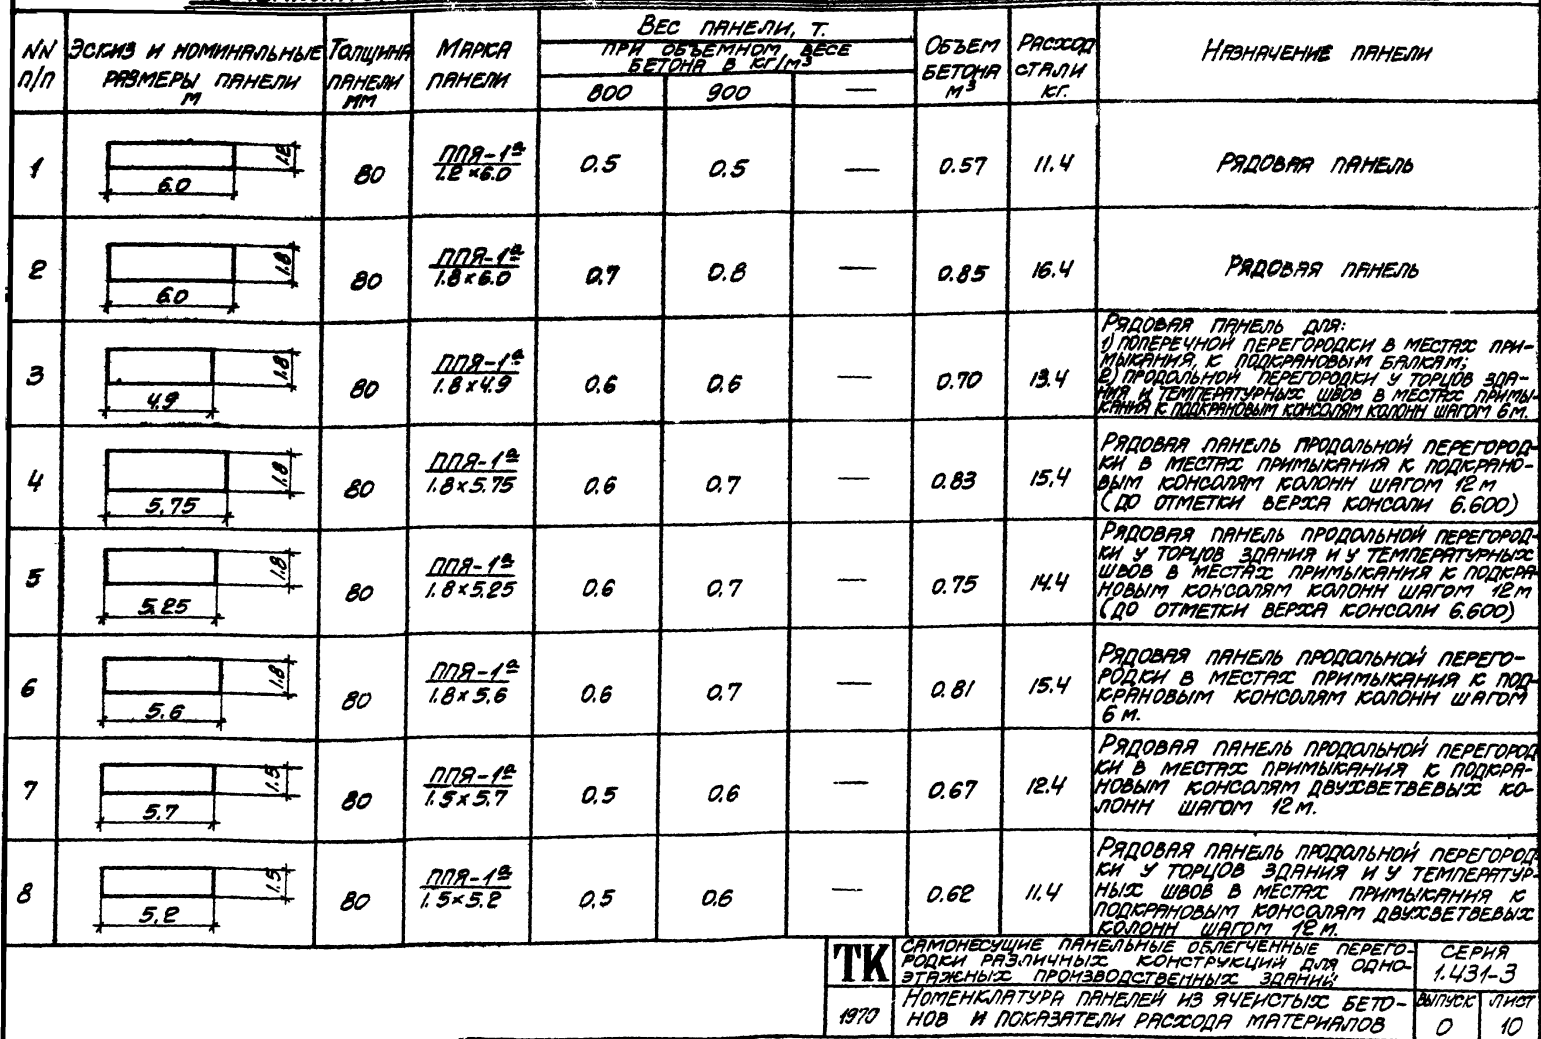 NN п/п
Эскиз и номинальные размеры панели м
Толщина панели мм
Марка панели
Вес панели, т.
при объемном весе бетона в кг/м³
800 900 —
Объем бетона м³
Расход стали кг.
Назначение панели
1 1.2 6.0 80 ППЯ-1а 1.2×6.0 0.5 0.5 — 0.57 11.4 Рядовая панель
2 1.8 6.0 80 ППЯ-1а 1.8×6.0 0.7 0.8 — 0.85 16.4 Рядовая панель
3 1.8 4.9 80 ППЯ-1а 1.8×4.9 0.6 0.6 — 0.70 13.4
Рядовая панель для:
1) поперечной перегородки в местах при-
мыкания к подкрановым балкам;
2) продольной перегородки у торцов зда-
ния и температурных швов в местах примы-
кания к подкрановым консолям колонн шагом 6 м.
4 1.8 5.75 80 ППЯ-1а 1.8×5.75 0.6 0.7 — 0.83 15.4
Рядовая панель продольной перегород-
ки в местах примыкания к подкрано-
вым консолям колонн шагом 12 м
(до отметки верха консоли 6.600)
5 1.8 5.25 80 ППЯ-1а 1.8×5.25 0.6 0.7 — 0.75 14.4
Рядовая панель продольной перегород-
ки у торцов здания и у температурных
швов в местах примыкания к подкра-
новым консолям колонн шагом 12 м
(до отметки верха консоли 6.600)
6 1.8 5.6 80 ППЯ-1а 1.8×5.6 0.6 0.7 — 0.81 15.4
Рядовая панель продольной перего-
родки в местах примыкания к под-
крановым консолям колонн шагом
6 м.
7 1.5 5.7 80 ППЯ-1а 1.5×5.7 0.5 0.6 — 0.67 12.4
Рядовая панель продольной перегород
ки в местах примыкания к подкра-
новым консолям двухветвевых ко-
лонн шагом 12 м.
8 1.5 5.2 80 ППЯ-1а 1.5×5.2 0.5 0.6 — 0.62 11.4
Рядовая панель продольной перегород
ки у торцов здания и у температур-
ных швов в местах примыкания к
подкрановым консолям двухветвевых
колонн шагом 12 м.
ТК
1970
Самонесущие панельные облегченные перего-
родки различных конструкций для одно-
этажных производственных зданий
Серия
1.431-3
Номенклатура панелей из ячеистых бето-
нов и показатели расхода материалов
Выпуск Лист
0 10